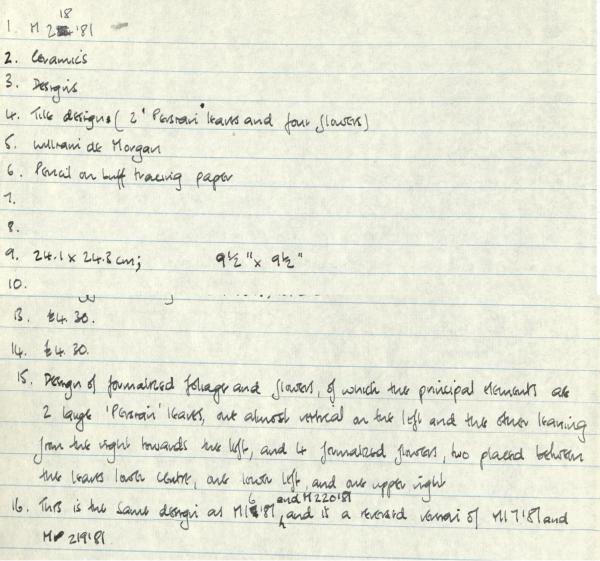 1. M 218'81
2. Ceramics
3. Designs
4. Tile designs (2 'Persian' leaves and four flowers)
5. William de Morgan
6. Pencil on buff tracing paper
7.
8.
9. 24.1 x 24.3 cm; 9½" x 9½"
10.
13. £4.30.
14. £4.30.
15. Design of formalized foliage and flowers, of which the principal elements are
2 large 'Persian' leaves, one almost vertical on the left and the other leaning
from the right towards the left, and 4 formalized flowers, two placed between
the leaves lower centre, one lower left, and one upper right
16. This is the same design as M16'81 and M220'81, and is a reversed version of M17'81 and
M219'81